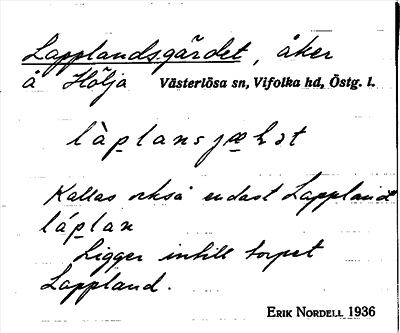 Lapplandsgärdet, åker
å Hölja Västerlösa sn, Vifolka hd, Östg. l.
Kallas också endast Lappland
Ligger intill torpet
Lappland.
ERIK NORDELL 1936